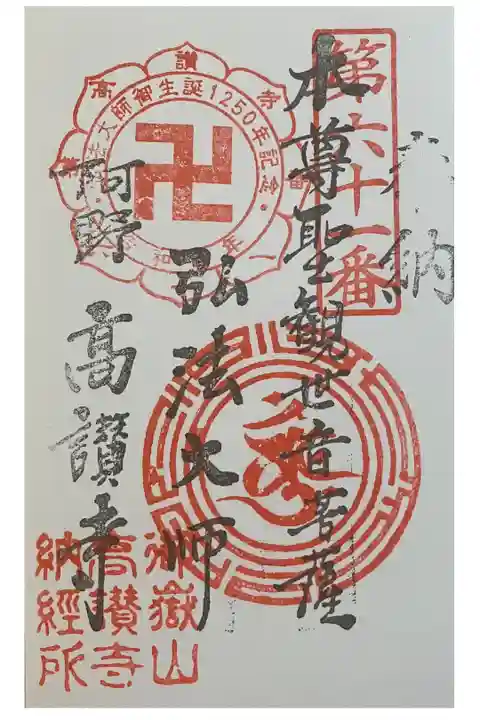 奉納
第六十一番
本尊聖観世音菩薩
弘法大師
阿野
高讃寺
大師御生誕1250年記念
高讃寺
御嶽山
高讃寺
納経所